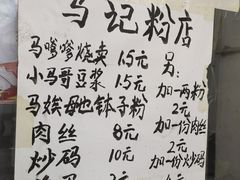 马记粉店
马嗲嗲烧卖 1.5元
小马哥豆浆 1.5元
马娭毑钵子粉
肉丝 8元
炒码 10元
另:
加一两粉
2元
加一份肉丝
2元
加一份炒码